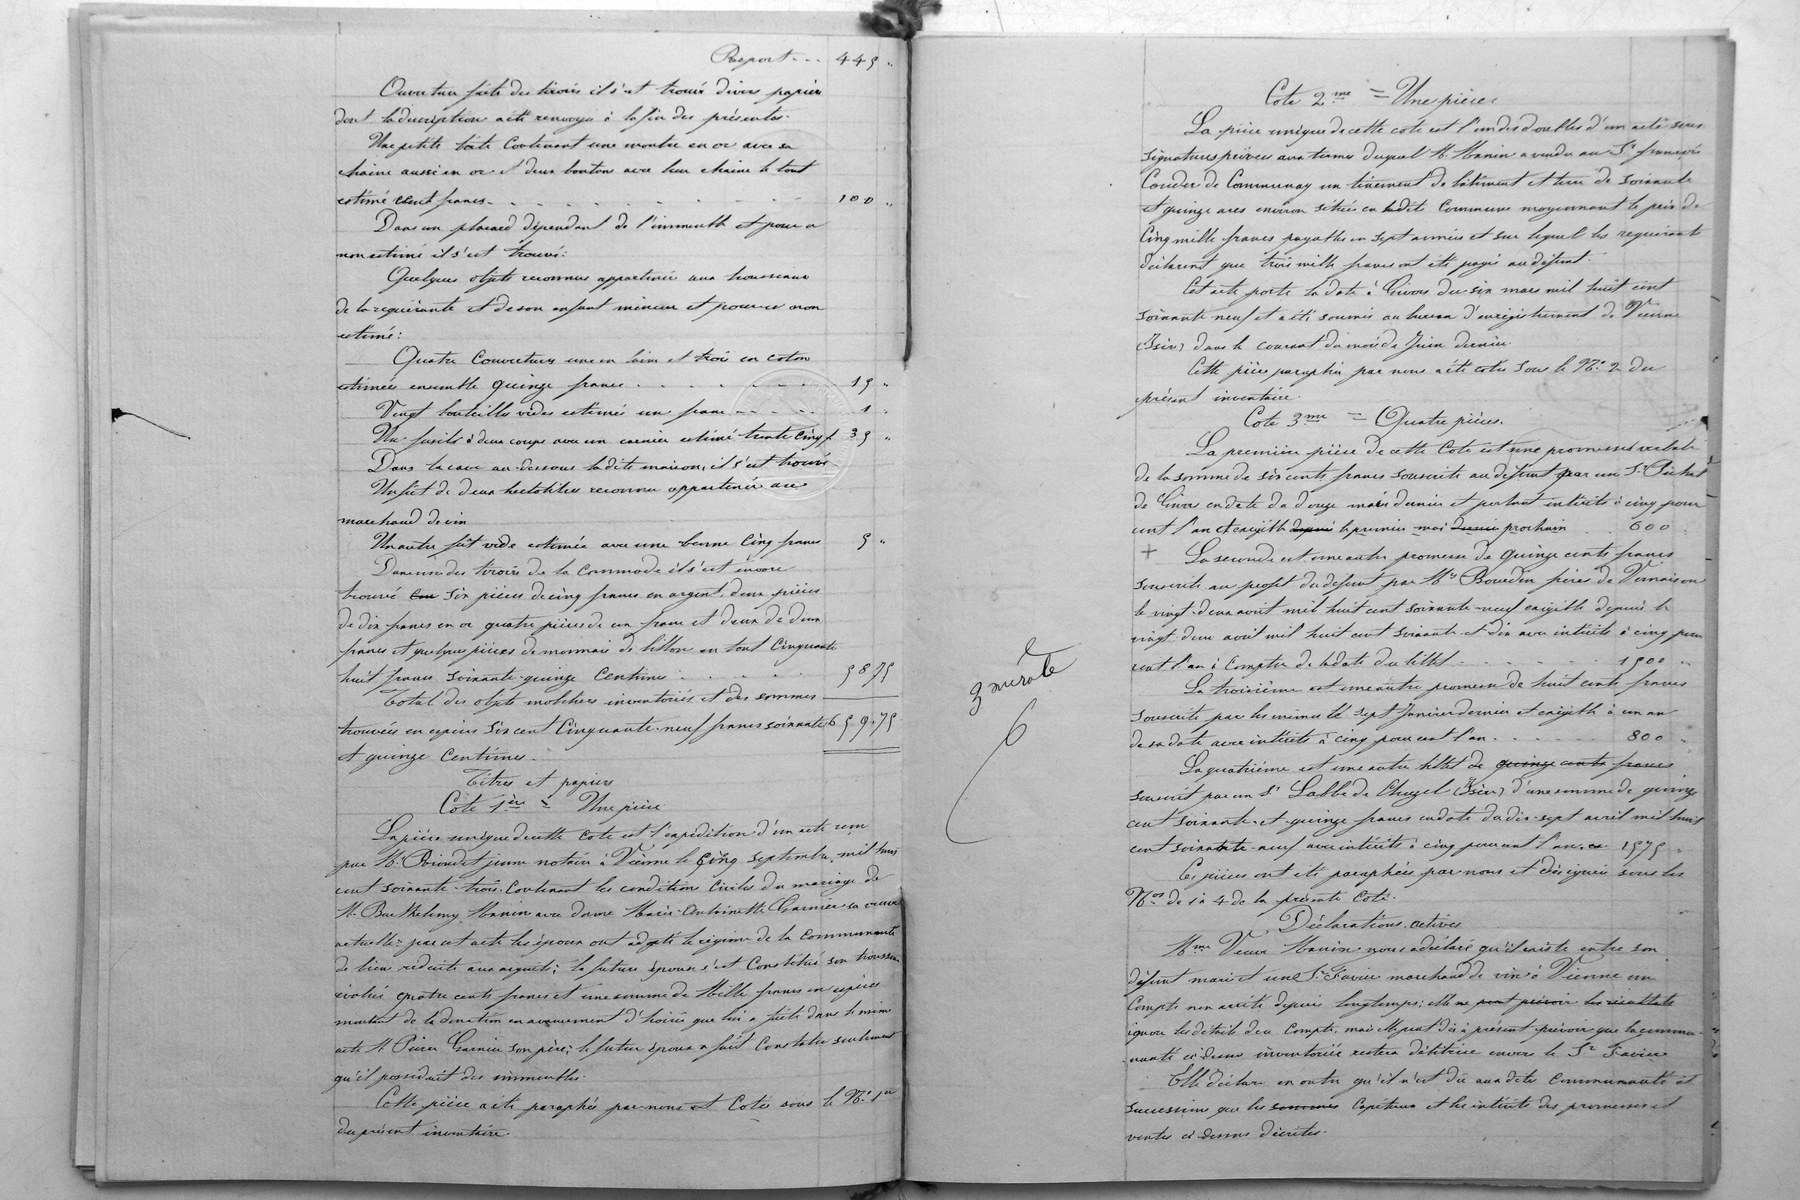 Report - - - 445 "
Ouverture faite des tiroirs il s'est trouvé divers papiers
dont la description a été renvoyée à la fin des présentes.
Une petite boîte contenant une montre en or avec sa
chaine aussi en or et deux boutons avec leur chaine le tout
estimé cent francs - - - - - - 100 "
Dans un placard dépendant de l'immeuble et pour ce
non estimé il s'est trouvé:
Quelques objets reconnus appartenir aux trousseaux
de la requérante et de son enfant mineur et pour ce non
estimé:
Quatre couvertures une en laine et trois en coton
estimées ensemble quinze francs - - - - - - 15 "
Vingt bouteilles vides estimées un franc - - - - 1 "
Un fusil à deux coups avec un carnier estimé trente cinq f 35 "
Dans la cave au-dessous ladite maison, il s'est trouvé
Un fût de deux hectolitres reconnu appartenir au
marchand de vin
Un autre fût vide estimé avec une benne cinq francs 5 "
Dans un des tiroirs de la commode il s'est encore
trouvé six pièces de cinq francs en argent, deux pièces
de dix francs en or quatre pièces de un franc et deux de deux
francs et quelques pièces de monnaie de billon en tout cinquante
huit francs soixante-quinze centimes - - - - - 58 75
Total des objets mobiliers inventoriés et des sommes
trouvées en espèces six cent cinquante-neuf francs soixante 659.75
et quinze centimes.
Titres et papiers
Cote 1ère = Une pièce
La pièce unique de cette cote est l'expédition d'un acte reçu
par Me jeune notaire à Vienne le cinq septembre mil huit
cent soixante-trois contenant les conditions civiles du mariage de
M. Barthelemy Manin avec dame Marie-Antoinette Garnier sa veuve
actuelle; par cet acte les époux ont adopté le régime de la communauté
de biens réduite aux acquêts; la future épouse s'est constitué son trousseau
évalué quatre cents francs et une somme de Mille francs en espèces
montant de la donation en avancement d'hoirie que lui a faite dans le même
acte M. Pierre Garnier son père; le futur époux a fait constater seulement
qu'il possédait des immeubles.
Cette pièce a été paraphée par nous et cotée sous le No 1er
du présent inventaire.
3 me rôle
Cote 2me = Une pièce
La pièce unique de cette cote est l'un des doubles d'un acte sous
signatures privées aux termes duquel M. Manin a vendu au Sr françois
Couder de Communay un tènement de bâtiment et terre de soixante
et quinze ares environ situés en ladite Commune moyennant le prix de
Cinq mille francs payables en sept années et sur lequel les requérants
déclarent que trois mille francs ont été payés au défunt.
Cet acte porte la date à Givors du six mars mil huit cent
soixante neuf et a été soumis au bureau d'enregistrement de Vienne
(Isère) dans le courant du mois de Juin dernier.
Cette pièce paraphée par nous a été cotée sous le No 2 du
présent inventaire.
Cote 3me = Quatre pièces.
La première pièce de cette Cote est une promesse verbale
de la somme de six cents francs souscrite au défunt par un Sr
de Givors en date du douze mars dernier et portant intérêts à cinq pour
cent l'an et exigible depuis le premier mai dernier prochain 600
+ La seconde est une autre promesse de quinze cents francs
souscrite au profit du défunt par Mrs Bourdin frères de Vernaison
le vingt-deux août mil huit cent soixante-neuf exigible depuis le
vingt-deux avril mil huit cent soixante-et-dix avec intérêts à cinq pour
cent l'an à compter de la date du billet - - - - - 1500 "
La troisième est une autre promesse de huit cents francs
souscrite par les mêmes le sept Janvier dernier et exigible à un an
de sa date avec intérêts à cinq pour cent l'an - - - - - 800 "
La quatrième est une autre billet de quinze cents francs
souscrit par un Sr Labbé de Chuzel (Isère) d'une somme de quinze
cent soixante-et-quinze francs en date du dix-sept avril mil huit
cent soixante-neuf avec intérêts à cinq pour cent l'an, 1575 "
Ces pièces ont été paraphées par nous et désignées sous les
Nos de 1 à 4 de la présente Cote.
Déclarations actives
Mme Veuve Manin nous a déclaré qu'il existe entre son
défunt mari et un Sr Favier marchand de vin à Vienne un
Compte non arrêté depuis longtemps; elle ne peut prévoir les résultats
ignore les détails du compte, mais elle peut dès à présent prévoir que la commu-
nauté ci-dessus inventoriée restera débitrice envers le Sr Favier
Elle déclare en outre qu'il n'est dû aux dites communauté et
succession que les sommes capitaux et les intérêts des promesses et
ventes ci-dessus décrites.